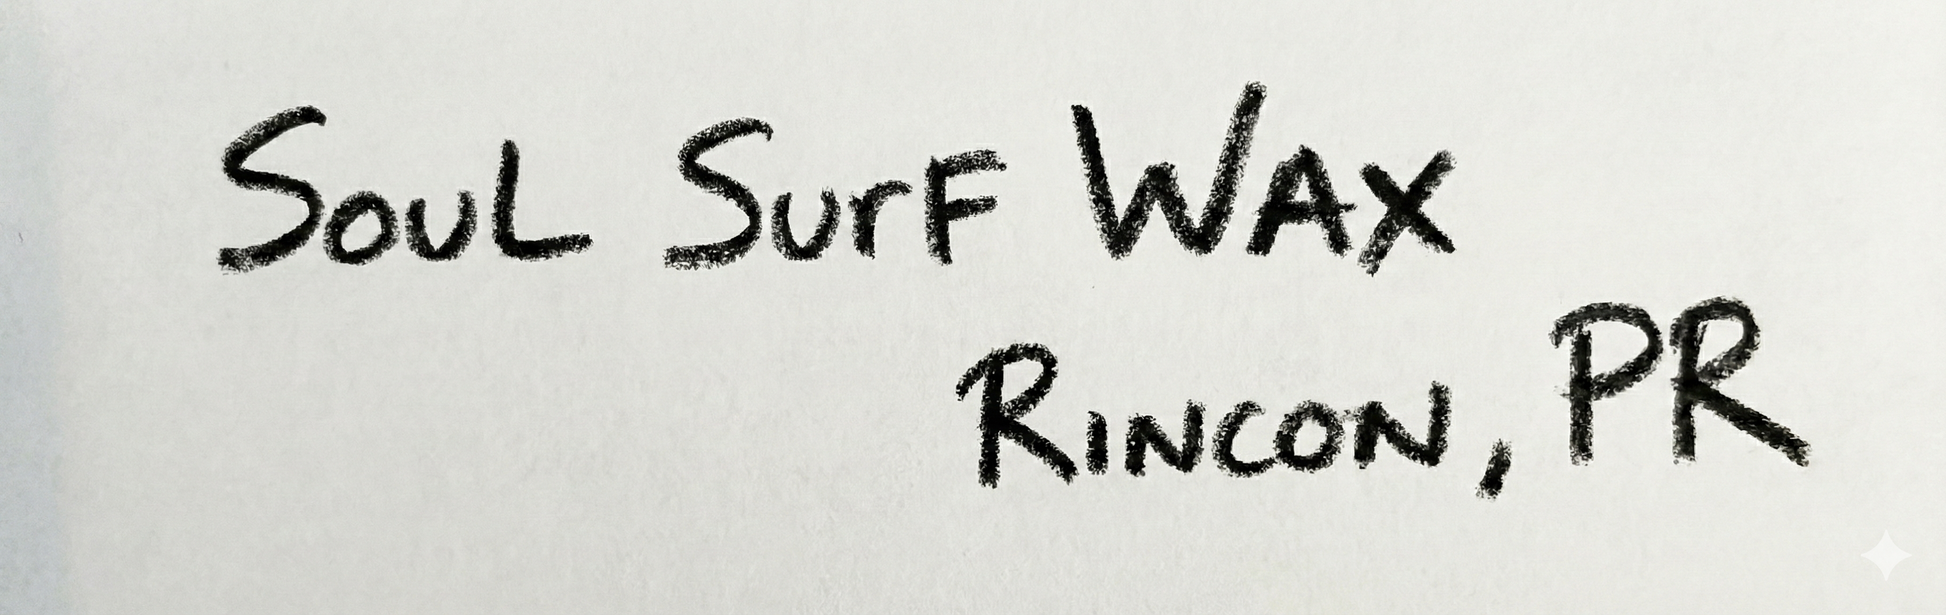 Soul Surf Wax
Rincon, PR